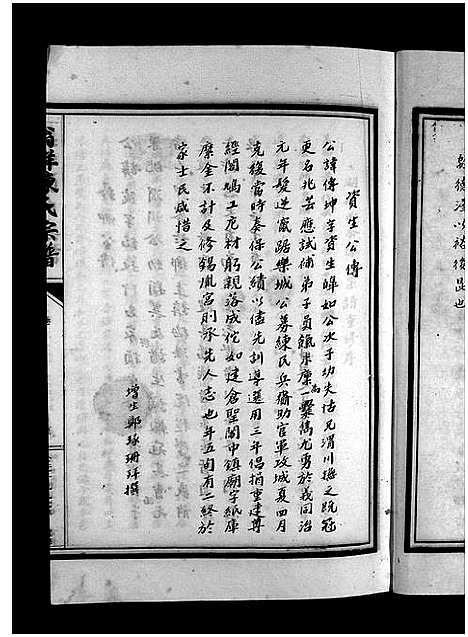 資生公傳
公諱傳坤字資生嶸如公次子幼失怙兄渭川撫之既冠
更名兆芸應試補弟子員餼米廩一黌尤勇於義同治
元年髮逆竄踞樂城公募練民兵齎助官軍攻城夏四月
克復當時奏保公績以儘先訓導選用三年倡捐重建尊
經閣鳩工庀材躬親落成佗如建倉聖閣巾鎮廟字紙庫
糜金不計及修錫胤宮則承先人志也年五旬有二終於
家士氏咸惜之
增生鄭琢珊拜撰
乾後淦以裕後昆也
陳氏宗譜